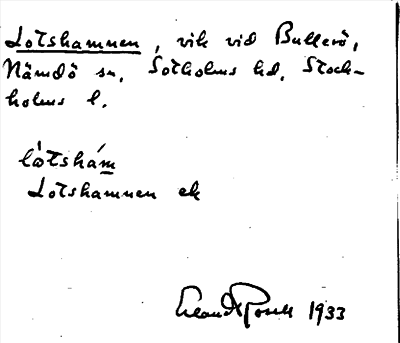 Lotshamnen, vik vid Bullerö,
Nämdö sn, Sotholms hd, Stock-
holms l.
låtshám
Lotshamnen ek
Erland Rosell 1933